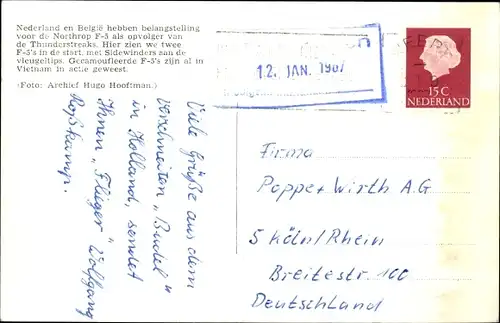 Nederland en België hebben belangstelling
voor de Northrop F-5 als opvolger van
de Thunderstreaks. Hier zien we twee
F-5's in de start, met Sidewinders aan de
vleugeltips. Gecamoufleerde F-5's zijn al in
Vietnam in actie geweest.
(Foto: Archief Hugo Hooftman.)
12. JAN. 1967
15 C
NEDERLAND
Viele Grüße aus dem
verschneiten „Budel"
in Holland, sendet
Ihnen „Flüger" Wolfgang
Roßkamp.
Firma
Poppe + Wirth A.G
5 Köln/Rhein
Breitestr. 100
Deutschland